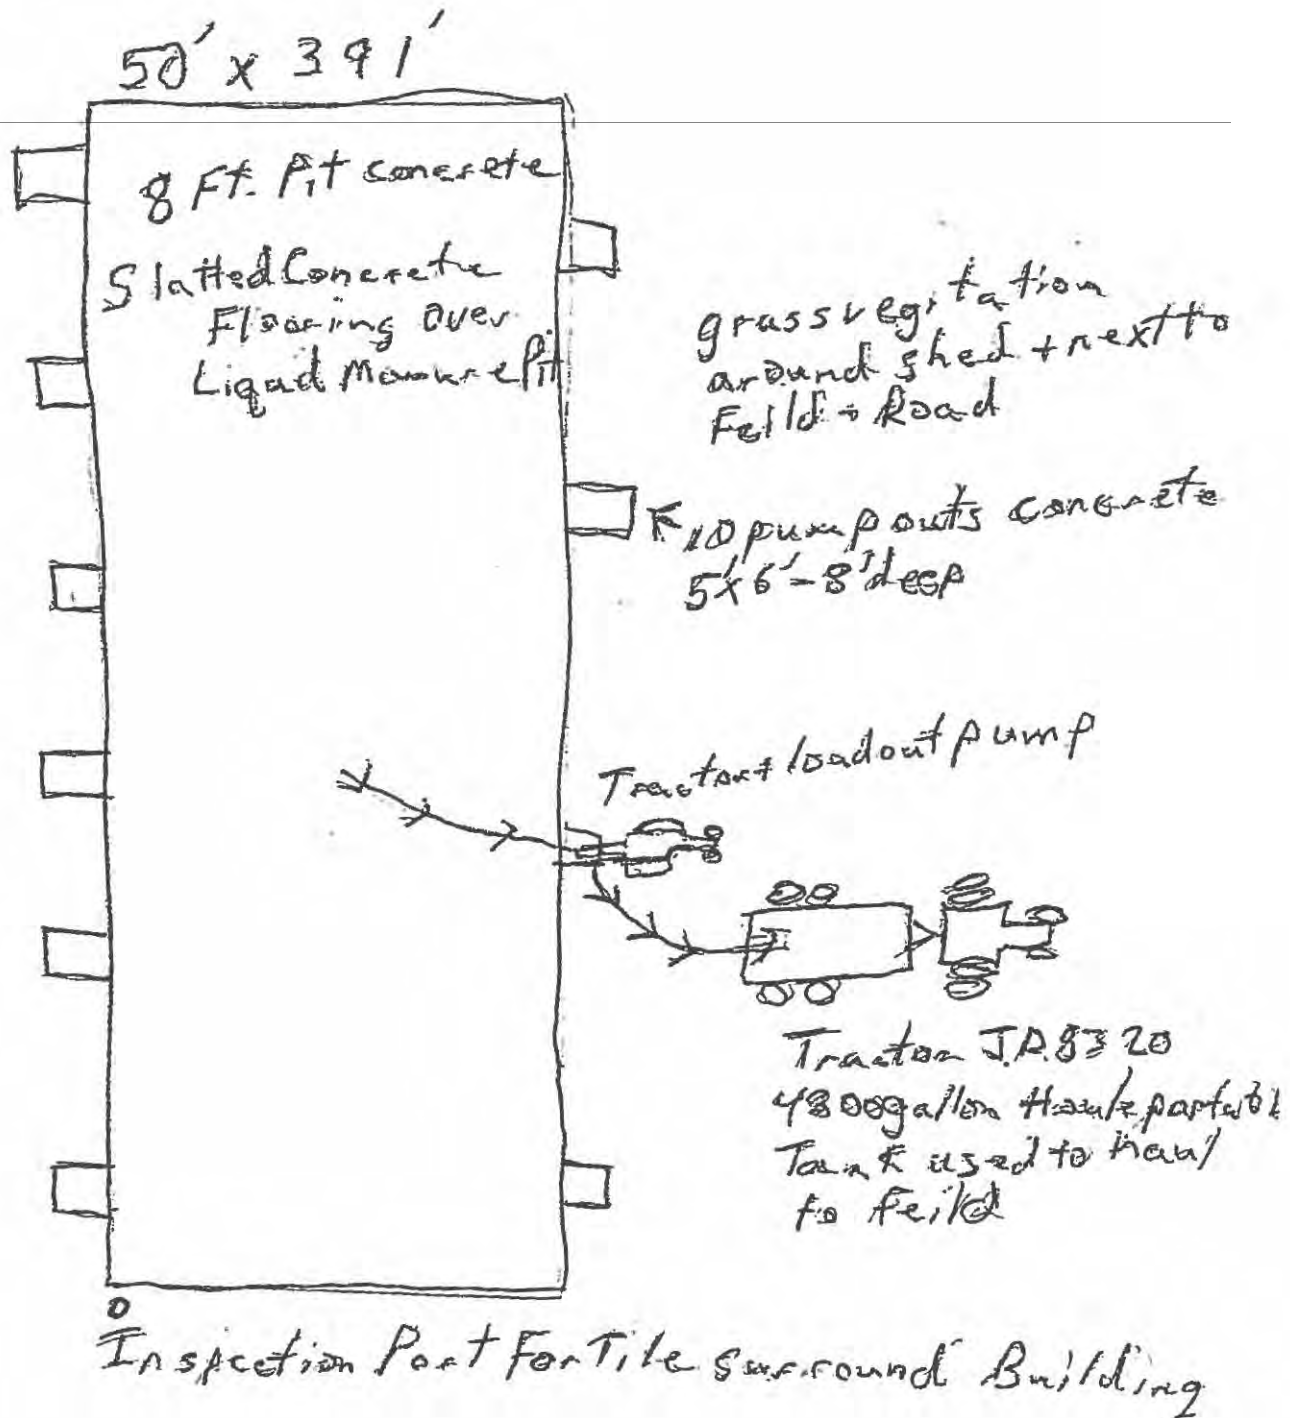 50' x 391'
8 Ft. Pit concrete
Slatted Concrete
Flooring Over
Liquad Manure Pit
grass vegitation
around shed + next to
Feild + Road
10 pump outs concrete
5'x6'-8' deep
Tractor + loadout pump
Tractor J.D. 8320
4800 gallon Houle portabl
Tank used to haul
to feild
Inspection Port For Tile surround Building